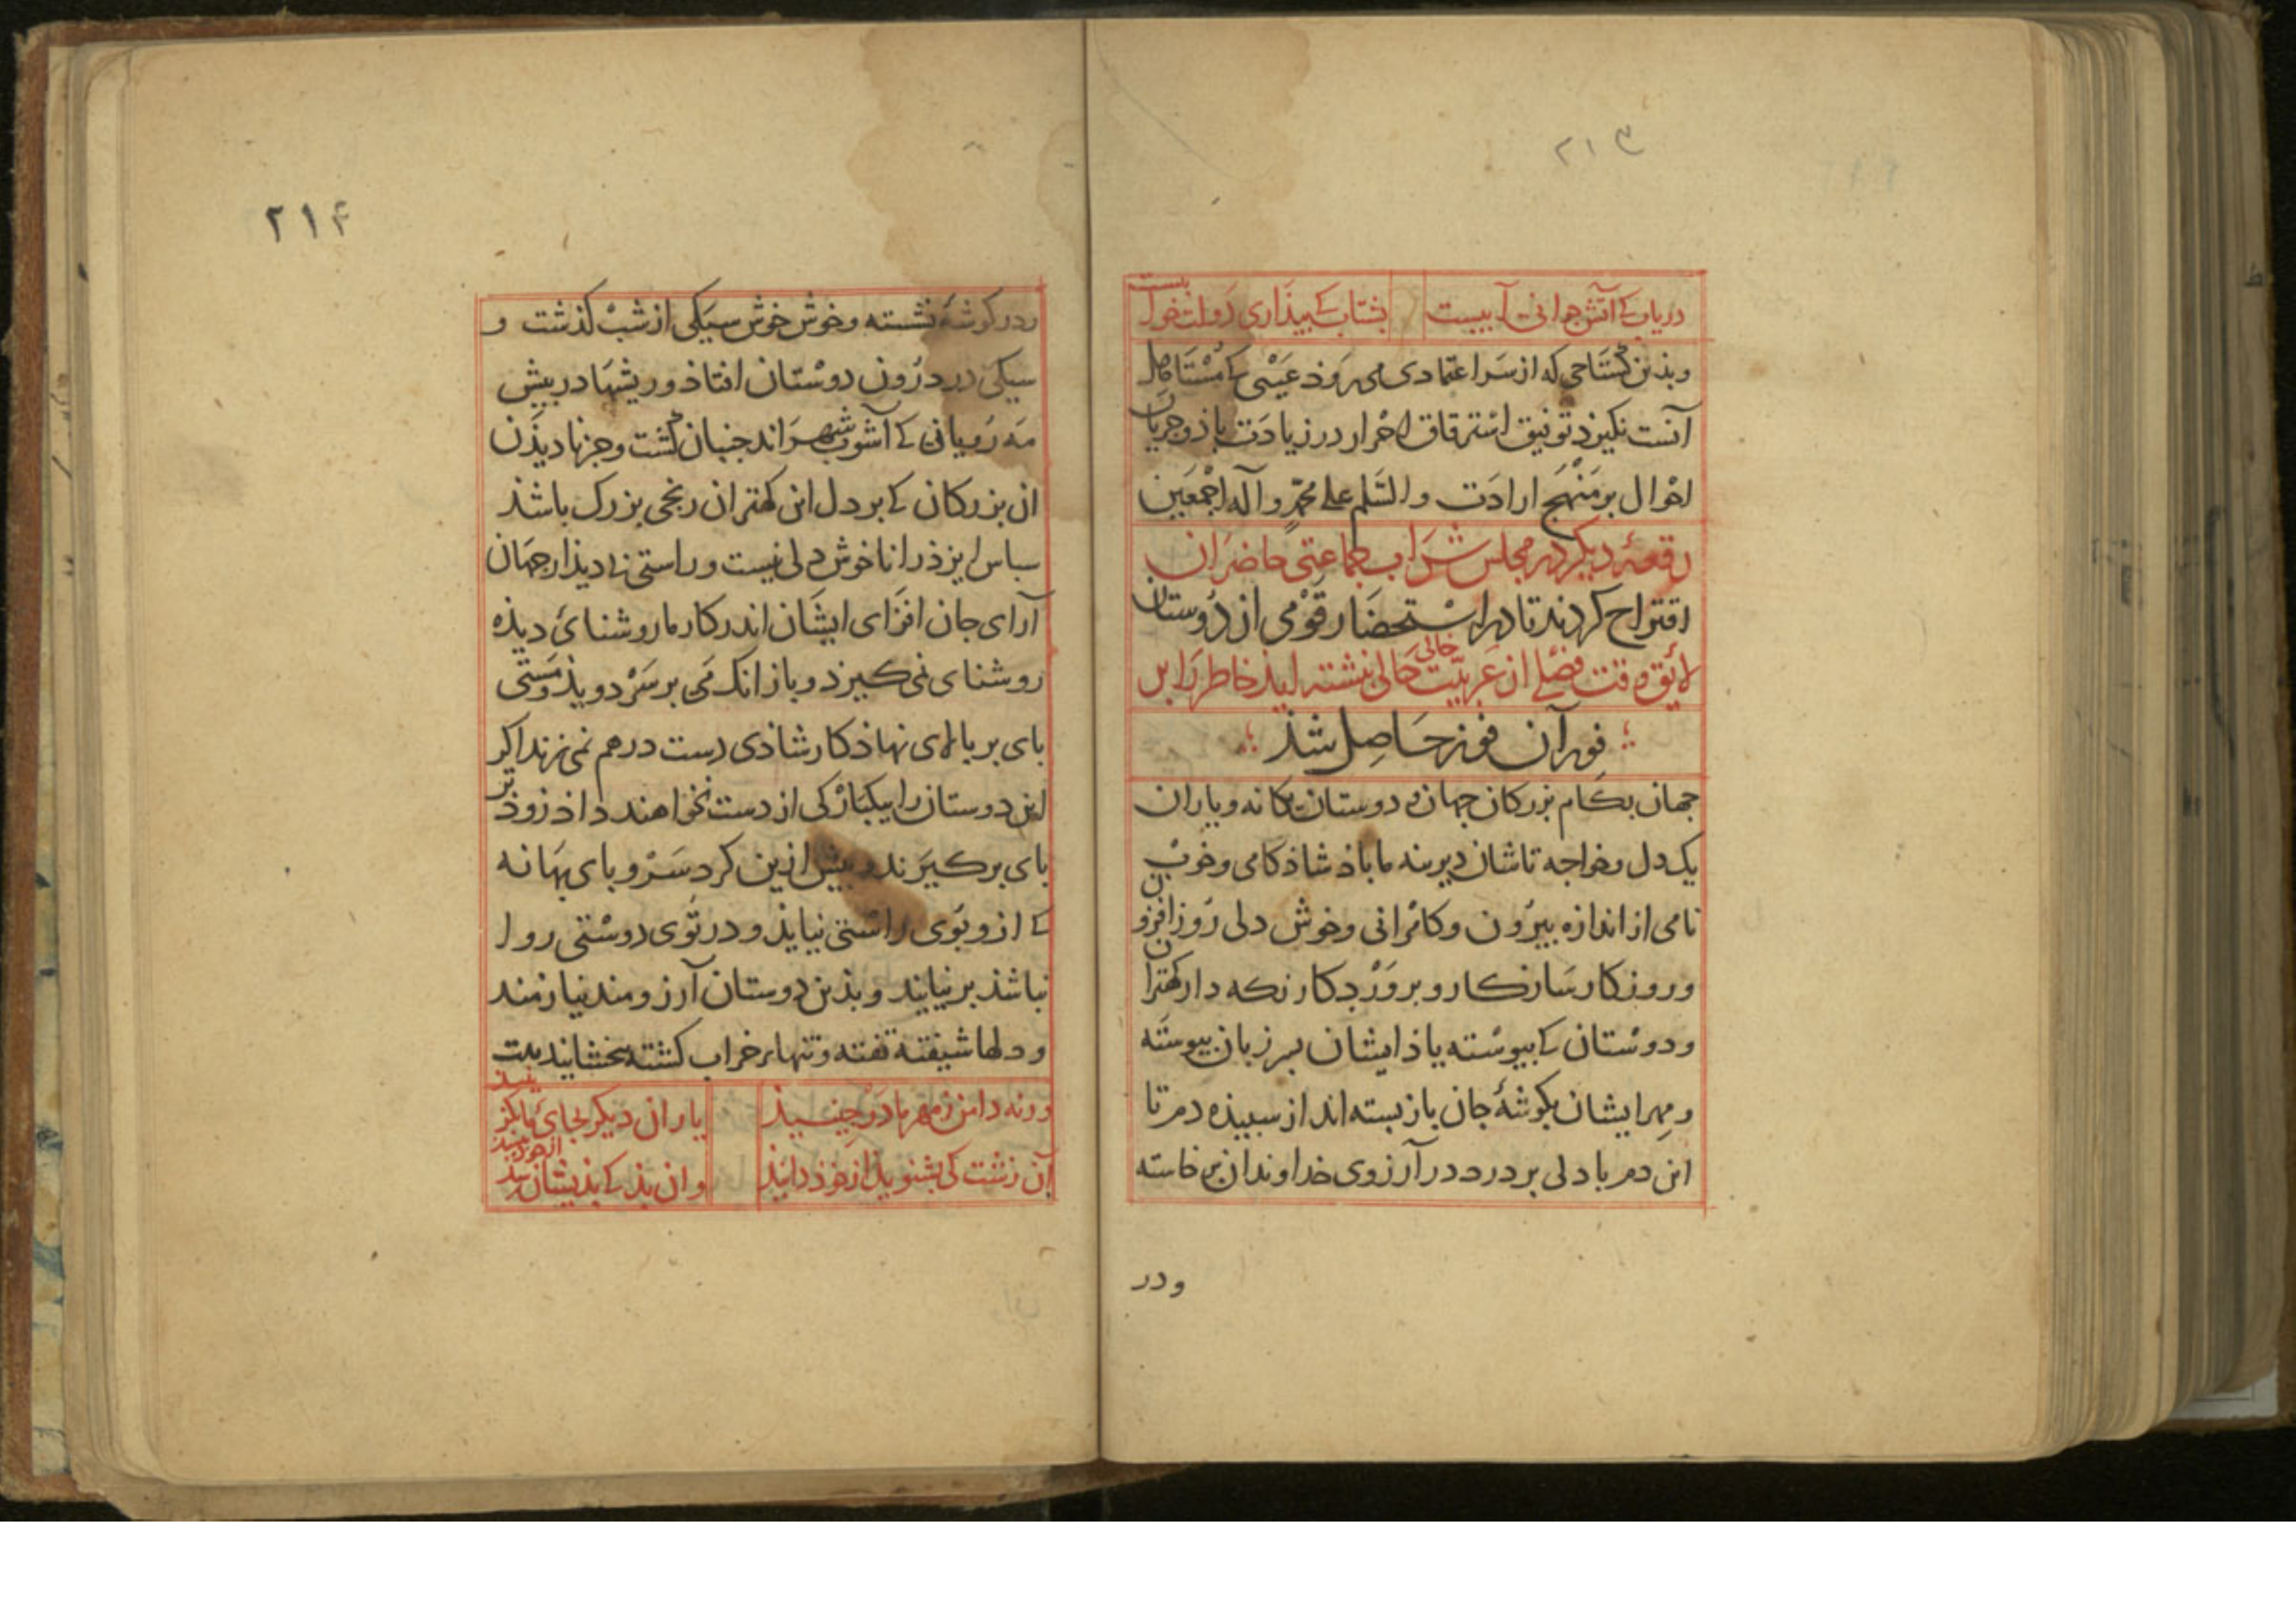 ۲۱۳
دریاب کے آتش جوانی آبیست
بشتاب کے بیذاری دولت خوابست
وبذین کستاخی که از سر اعتمادی می روذ عیبی کے مستاهل
آنست نکیرذ توفیق استرقاق احرار در زیادت باذ و جریان
احوال بر منهج ارادت والسلم علی محمد وآله اجمعین
رقعهٔ دیکر در مجلس شراب جماعتی حاضران
اقتراح کردند تا در استحضار قومی از دوستان
لایق وقت فصلی از عربیّت خالی نبشته ایذ خاطر را بر
فور آن فوز حاصل شذ
جهان بکام بزرکان جهان و دوستان یکانه و یاران
یک دل و خواجه تاشان دیرینه ما باذ شاذکامی و خوش
نامی از اندازه بیرون و کامرانی و خوش دلی روز افزون
و روزکار سازکار و پروردکار نکه دار کهتران
و دوستان کے پیوسته یاذ ایشان بر زبان پیوسته
و مهر ایشان بکوشهٔ جان باز بسته اند از سپیذه دم تا
این دم با دلی بر درد در آرزوی خداوندان برخاسته
ودر
۲۱۴
ودر کوشهٔ نشسته و خوش خوش سیکی از شب کذشت و
سیکی در درون دوستان افتاذ و ریشها در پیش
مه رویانی کے آشوب شهراند جنبان کشت و جز نادیذن
ان بزرکان کے بر دل این کهتران رنجی بزرک باشذ
سباس ایزذ را ناخوش دلی نیست و راستی بی دیذار جهان
آرای جان افزای ایشان اندر کار ما روشنائی دیذه
روشنای نمی کیرذ و باز انک می بر سر دویذ و مستی
بای بر بالای نهاذ کار شاذی دست درهم نمی زند اکر
این دوستان را بیکبارکی از دست نخواهند داذ زوذتر
بای برکیرند و بیش ازین کرد سر و بای بهانه
کے ازو بوی راستی نیایذ و در توی دوستی روا
نباشذ برنیایند و بذین دوستان آرزومند نیازمند
و دلها شیفته تفته و تنها خراب کشته بخشایند بیت
ورنه دامن ز مهر ما در چینیذ
یاران دیکر بجای ما بکزینیذ
آن زشت کی بشنویذ از خوذ دانیذ
وان بذ کے بذیشان رسذ